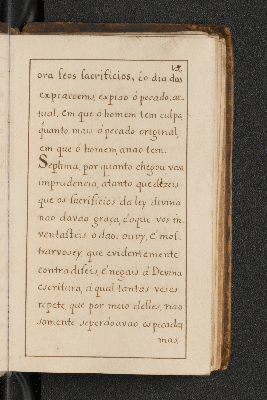 ora seos sacrificios, e o dia das
expiacoems, expiao ó pecado, ac-
tual, em que ó homem tem culpa
quanto mais ó pecado original,
em que ó homem, anaó tem.
Septima, por quanto chegou vosa
imprudencia, atanto que dizeis
que os sacrificios da ley divina
naó davaó graça, é o que vos in-
ventasteis o daó. ouvy, é mos-
trarvos ey que evidentemente
contradiseis, é negais á Devina
escritura, á qual tantas veses
repete que por meio delles, naó
somente se perdoavaó os pecados
mas